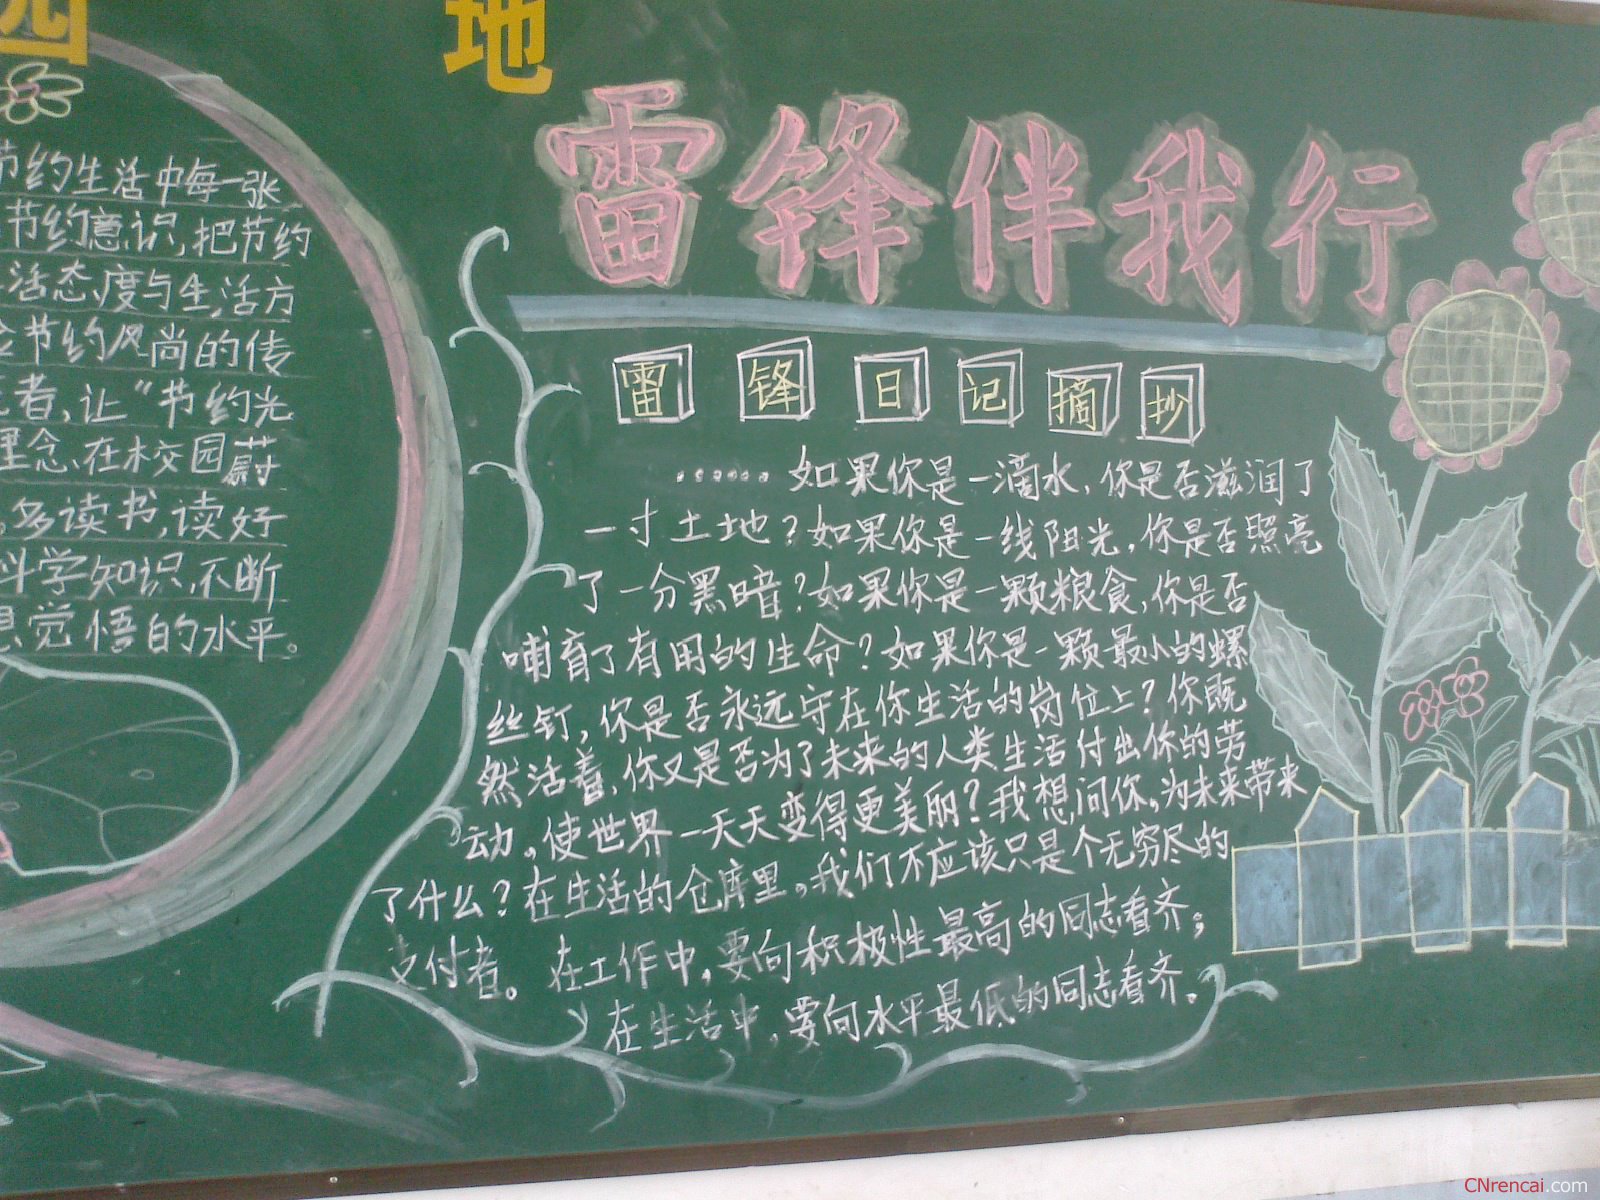 园 地
节约生活中每一张
节约意识,把节约
活态度与生活方
节约风尚的传
者,让“节约光
理念,在校园蔚
多读书,读好
科学知识,不断
觉悟的水平。
雷锋伴我行
雷锋日记摘抄
……如果你是一滴水,你是否滋润了
一寸土地?如果你是一线阳光,你是否照亮
了一分黑暗?如果你是一颗粮食,你是否
哺育了有用的生命?如果你是一颗最小的螺
丝钉,你是否永远守在你生活的岗位上?你既
然活着,你又是否为了未来的人类生活付出你的劳
动,使世界一天天变得更美丽?我想问你,为未来带来
了什么?在生活的仓库里,我们不应该只是个无穷尽的
支付者。在工作中,要向积极性最高的同志看齐;
在生活中,要向水平最低的同志看齐。
CNrencai.com